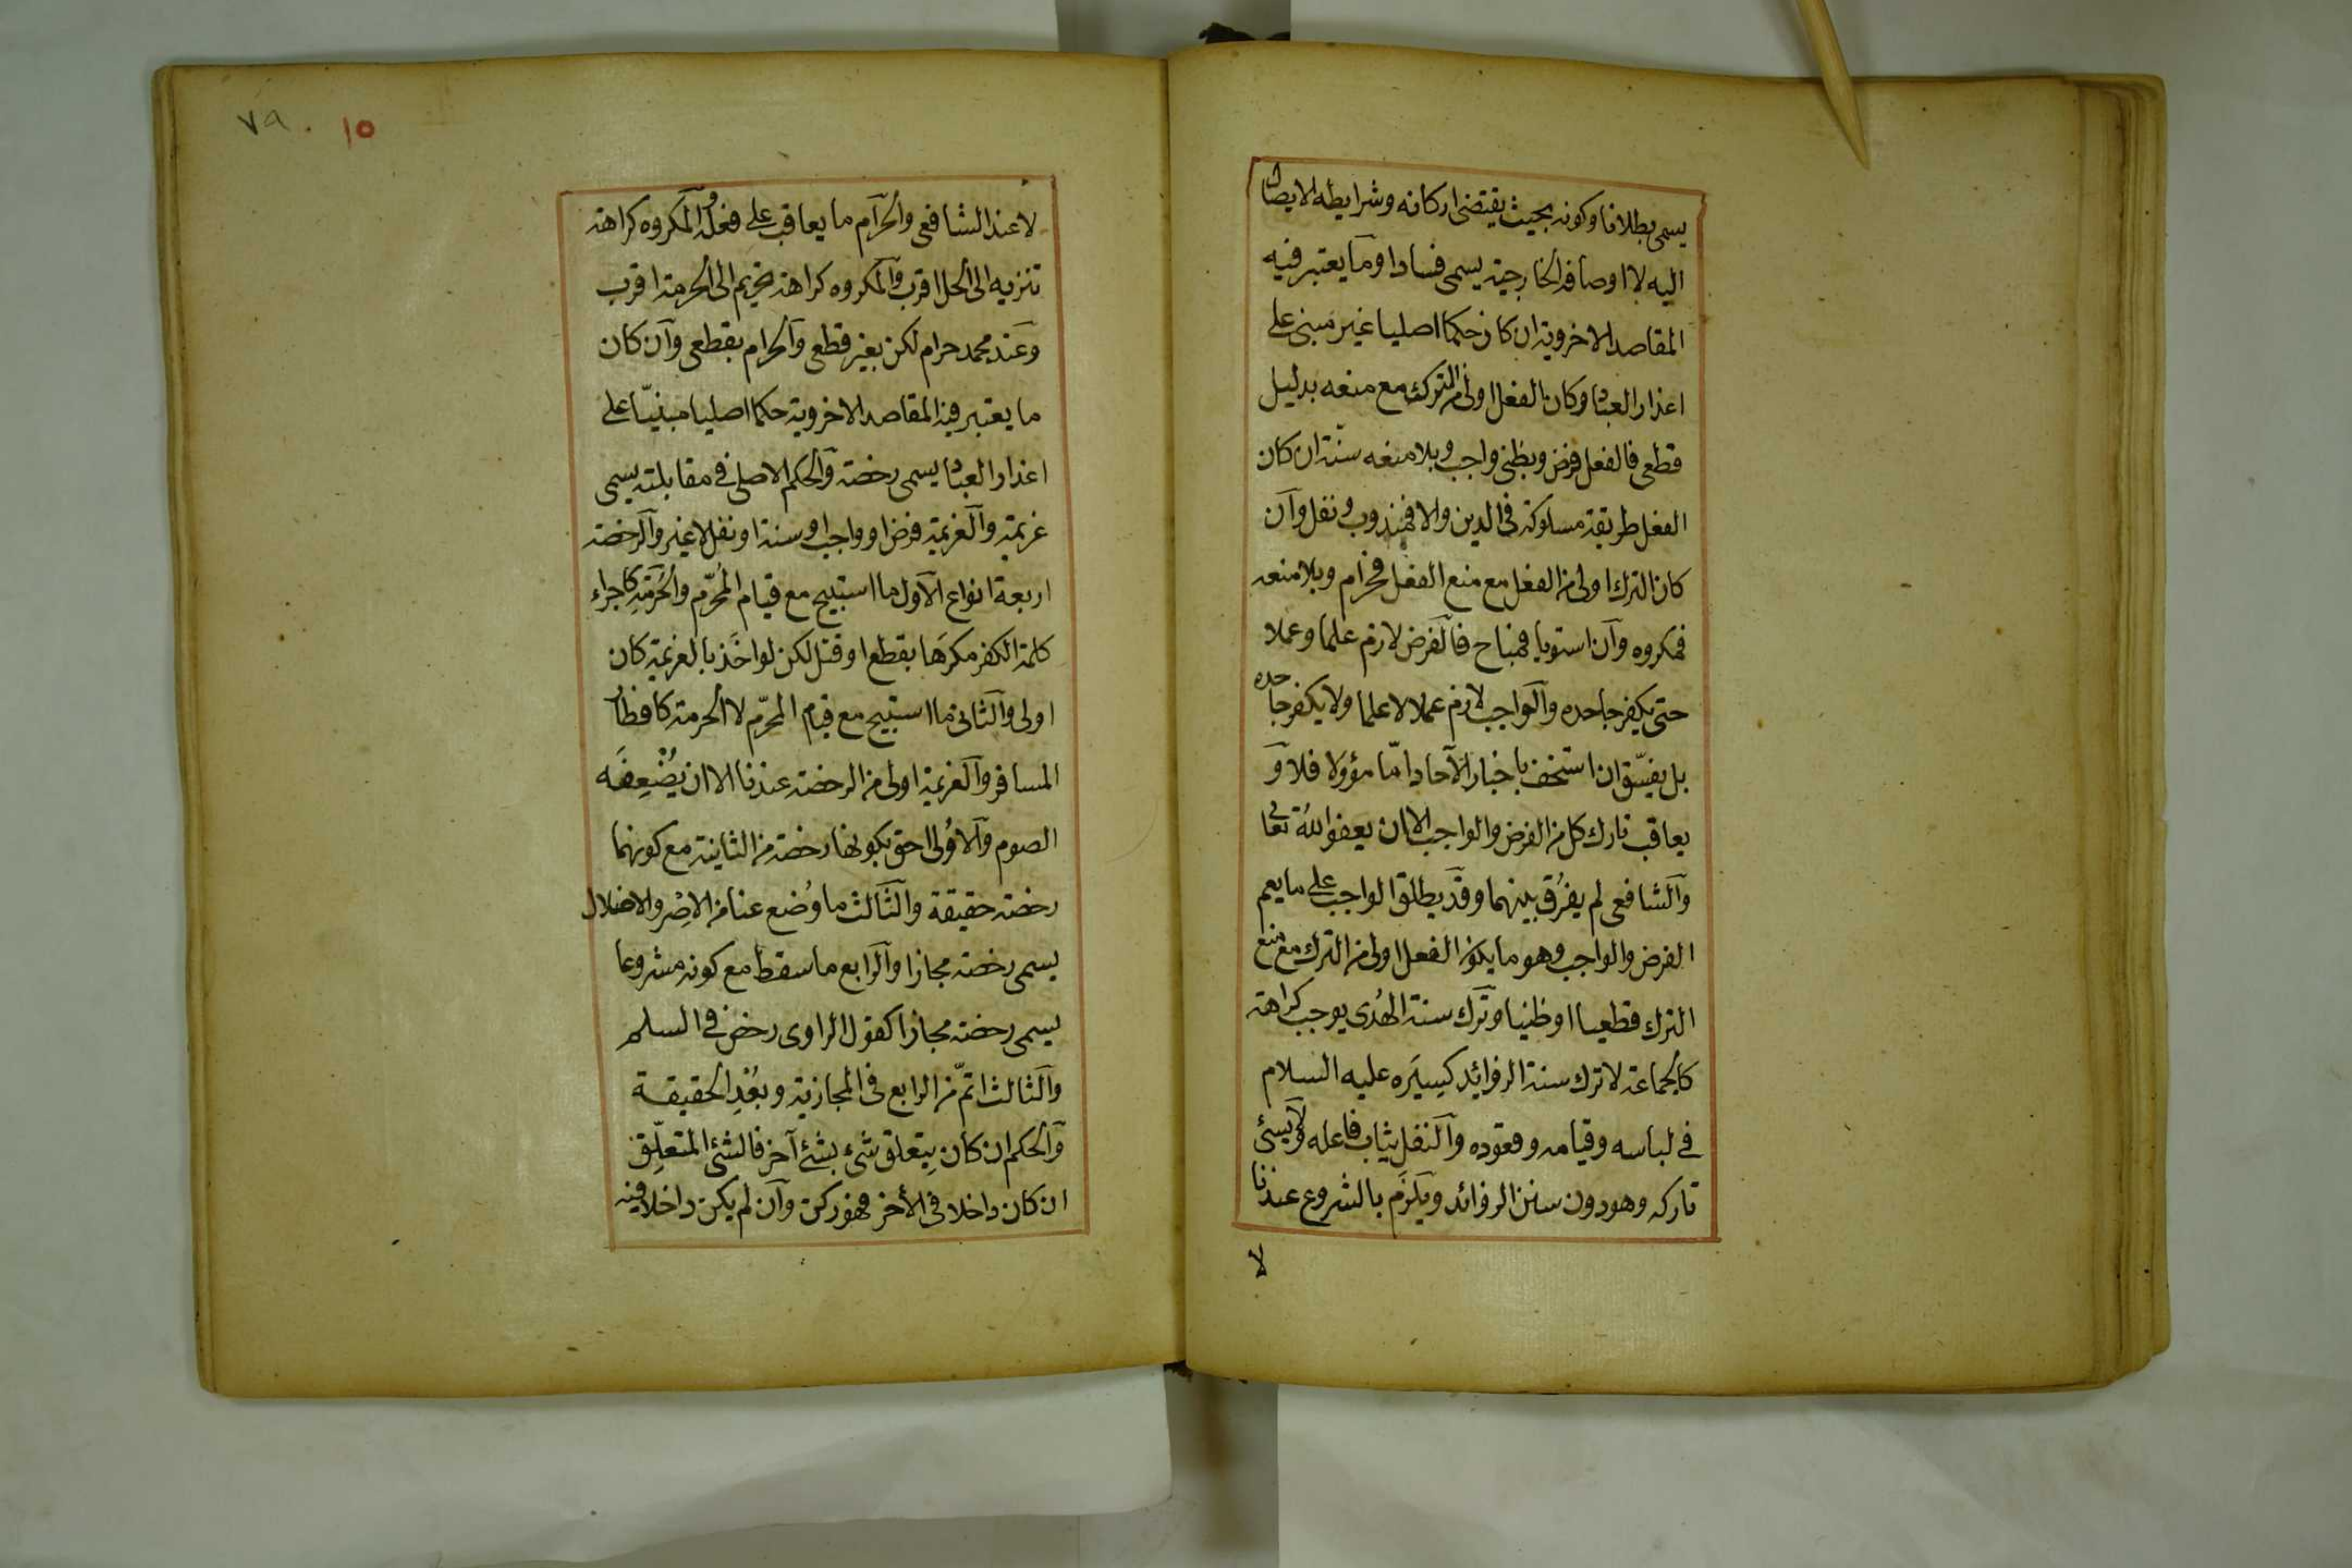 يسمى بطلانا وكونه بحيث يقتضى اركانه وشرايطه الايصال
اليه لا اوصافه الخارجية يسمى فسادا وما يعتبر فيه
المقاصد الاخروية ان كان حكما اصليا غير مبنى على
اعذار العباد وكان الفعل اولى من الترك مع منعه بدليل
قطعى فالفعل فرض وبظنى واجب وبلا منعه سنة ان كان
الفعل طريقة مسلوكة فى الدين والا فمندوب ونفل وان
كان الترك اولى من الفعل مع منع الفعل فحرام وبلا منعه
فمكروه وان استويا فمباح فالفرض لازم علما وعملا
حتى يكفر جاحده والواجب لازم عملا لا علما ولا يكفر جاحده
بل يفسّق ان استخف باخبار الآحاد امّا مؤولا فلا و
يعاقب تارك كل من الفرض والواجب الا ان يعفو الله تعا
والشافعى لم يفرُق بينهما وقد يطلق الواجب على ما يعم
الفرض والواجب وهو ما يكون الفعل اولى من الترك مع منع
الترك قطعيا او ظنيا وترك سنة الهُدى يوجب كراهة
كالجماعة لا ترك سنة الزوائد كسيَره عليه السلام
فى لباسه وقيامه وقعوده والنفل يثاب فاعله ولا يسئ
تاركه وهو دون سنن الزوائد ويلزَم بالشروع عندنا
لا
٧٩ . ١٥
لا عند الشافعى والحرام ما يعاقب على فعله والمكروه كراهة
تنزيه الى الحل اقرب والمكروه كراهة تحريم الى الحرمة اقرب
وعند محمد حرام لكن بغير قطعى والحرام بقطعى وان كان
ما يعتبر فيه المقاصد الاخروية حكما اصليا مبنيّا على
اعذار العباد يسمى رخصة والحكم الاصلى فى مقابلته يسمى
عزيمة والعزيمة فرض او واجب او سنة او نفل لا غير والرخصة
اربعة انواع الاول ما استبيح مع قيام المُحرّم والحُرمَةِ كاجراء
كلمة الكفر مكرَها بقطع او قتل لكن لو اخَذ بالعزيمة كان
اولى والثانى ما استبيح مع قيام المحرّم لا الحرمة كافطار
المسافر والعزيمة اولى من الرخصة عندنا الا ان يُضْعِفَه
الصوم والاُولى احق بكونها رخصة من الثانية مع كونهما
رخصة حقيقة والثالث ما وُضع عنا من الاِصْر والاغلال
يسمى رخصة مجازا والرابع ما سقط مع كونه مشروعا
يسمى رخصة مجازا كقول الراوى رخص فى السلم
والثالث اتمّ من الرابع فى المجازية وبعُدِ الحقيقة
والحكم ان كان بِتعلق شئ بشئ آخر فالشئ المتعلِّق
ان كان داخلا فى الأخر فهو ركن وان لم يكن داخلا فيه